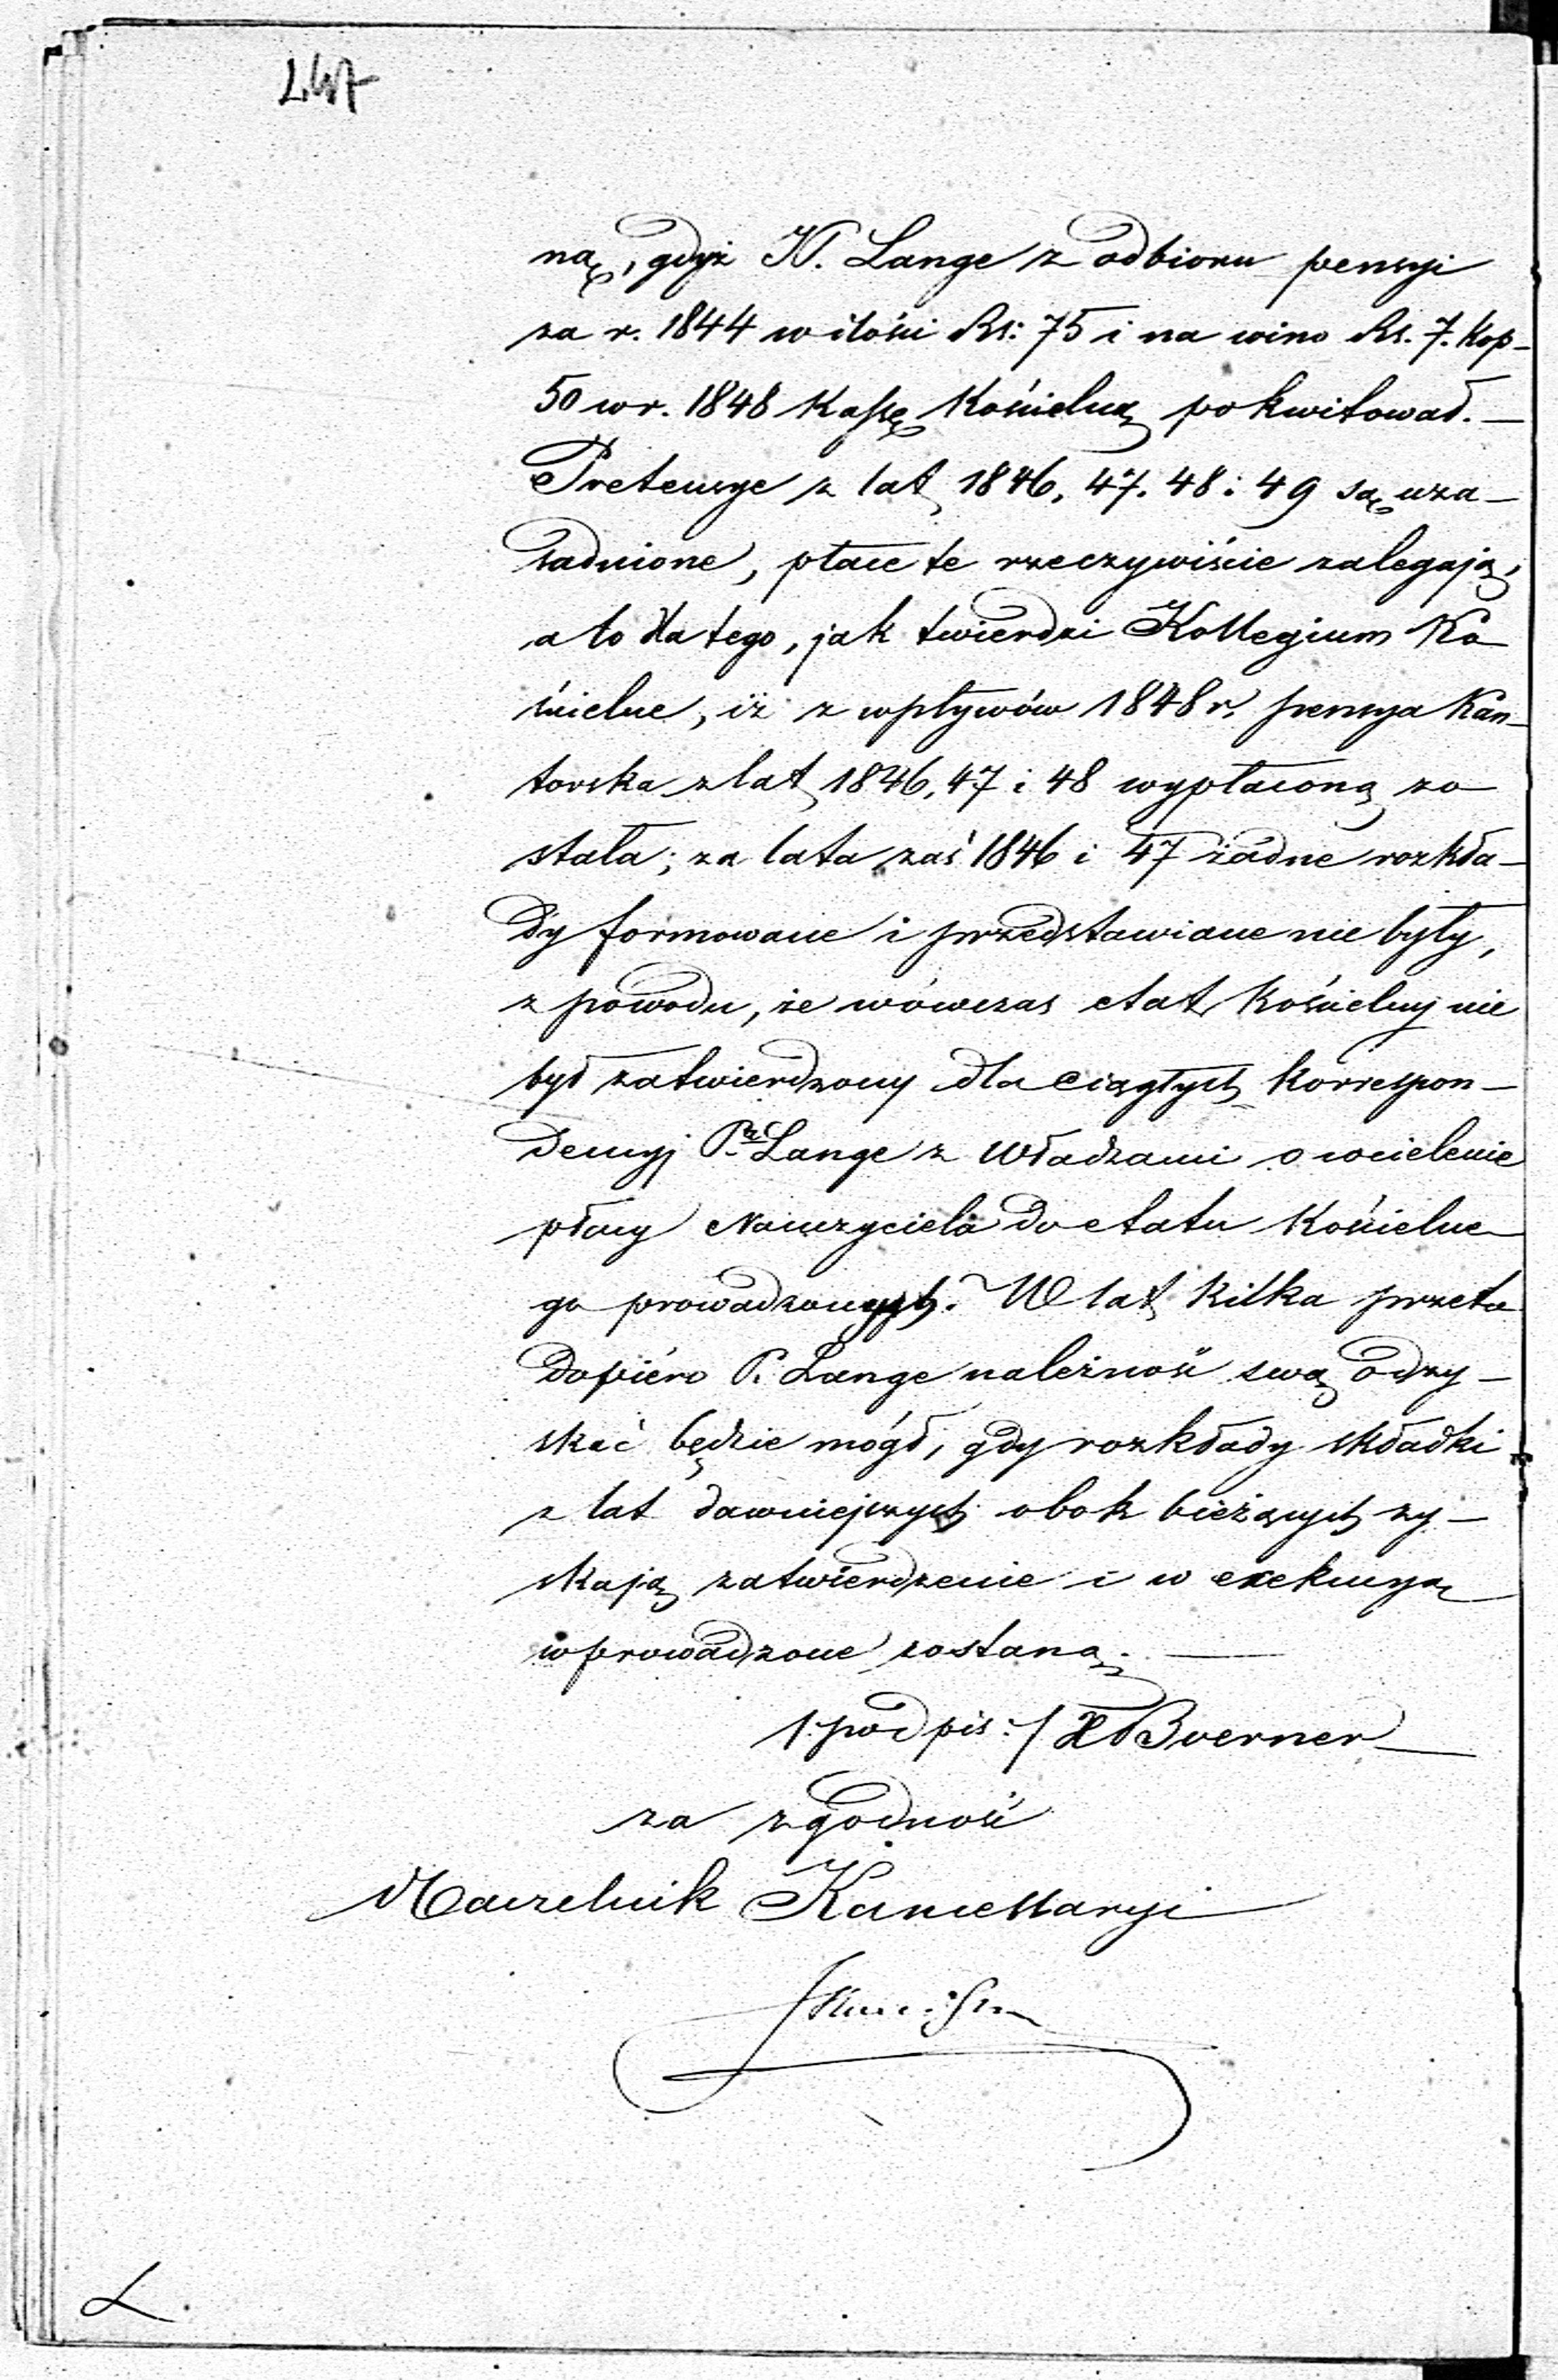 247
ną, gdyż X. Lange z odbioru pensyi
za r. 1844 w ilości Rs: 75 i na wino Rs. 7. Kop-
50 w r. 1848 Kassę Kościelną pokwitował. —
Pretensye z lat 1846, 47. 48 i 49 są uza-
sadnione, płace te rzeczywiście zalegają,
a to dla tego, jak twierdzi Kollegium Ko-
ścielne, iż z wpływów 1848 r. pensya Kan-
torska z lat 1846, 47 i 48 wypłaconą zo-
stała; za lata zaś 1846 i 47 żadne rozkła-
dy formowane i przedstawiane nie były,
z powodu, że wówczas etat Kościelny nie
był zatwierdzony dla ciągłych korrespon-
dencyj P. Lange z Władzami o wcielenie
płacy Nauczyciela do etatu Kościelne-
go prowadzonych. W lat kilka przeto
dopiéro P. Lange należność swą odzy-
skać będzie mógł, gdy rozkłady składki
z lat dawniejszych obok bieżących zy-
skają zatwierdzenie i w exekucyą
wprowadzone zostaną. —
/:podpis:/ X Boerner
za zgodność
Naczelnik Kancellaryi
L.